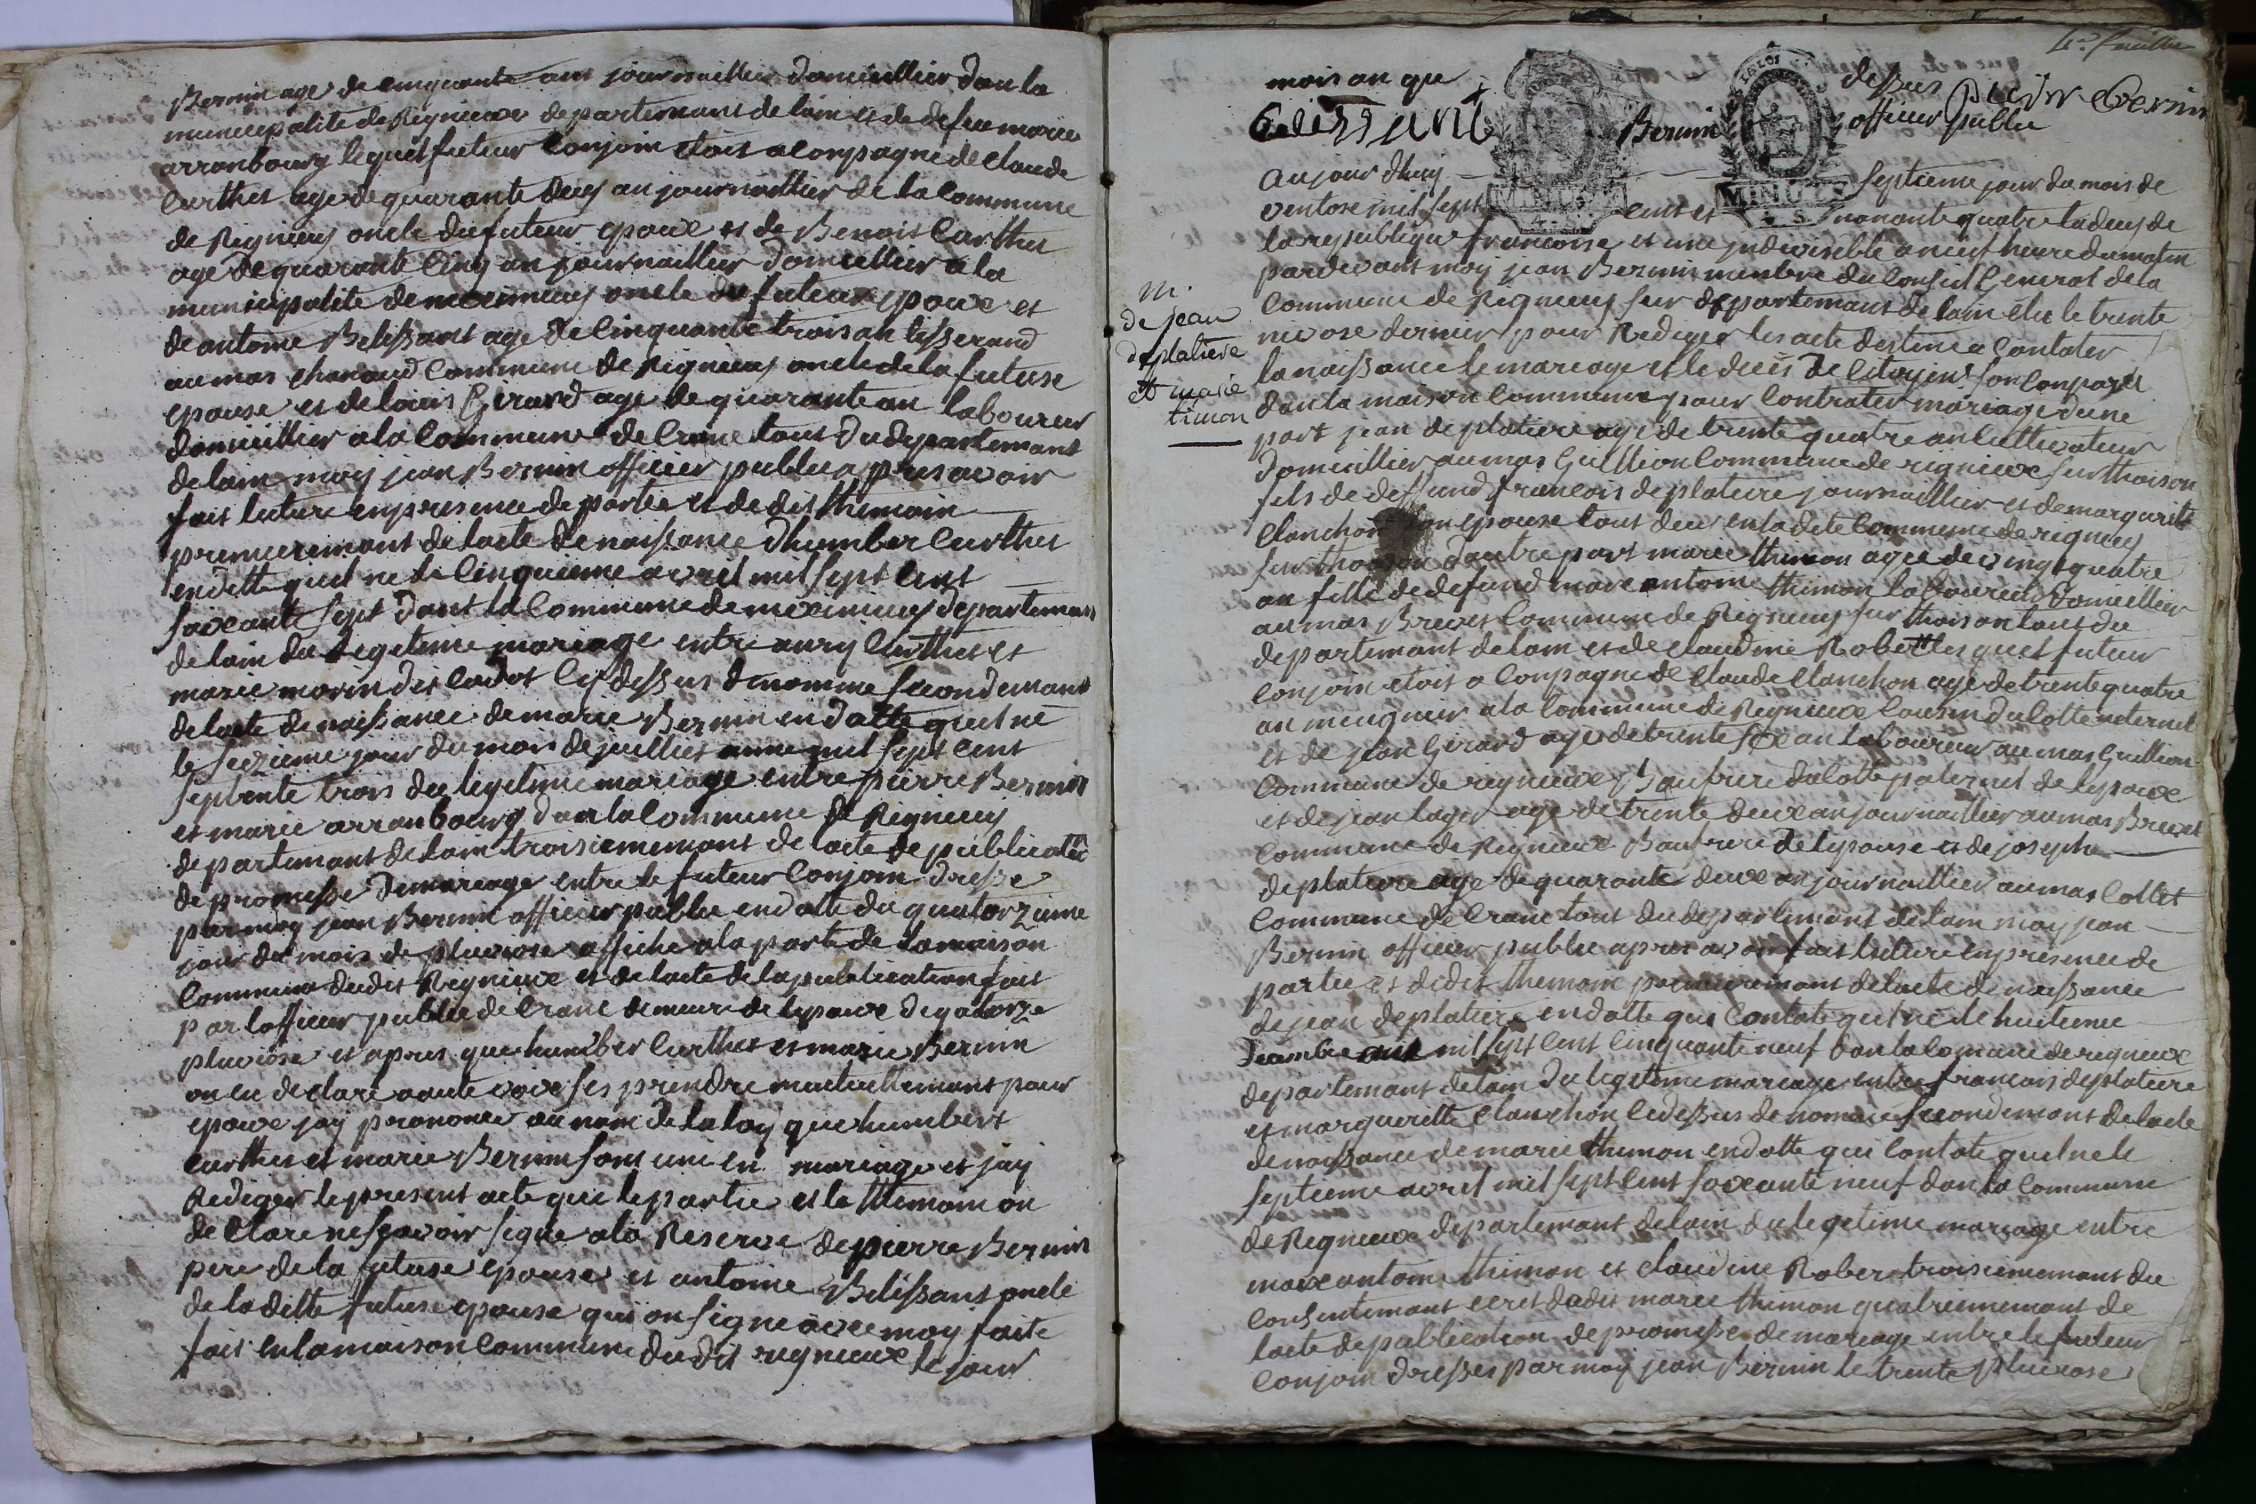 Bernin age de cinquante ans journaillier domicillier dan la
municipalite de Rignieux departemant de lain et de defeu marie
arranbourg lequel futeur Conjoin etoit aConpagne de Claude
Curthet age de quarante deux an journaillier de la Commune
de Rignieux oncle du futeur epoux et de Benoit Curthet
age de quarante Cinq an journaillier domicillier a la
municipalite de meximieux oncle du futeur epoux et
de antoine Belissant age de Cinquante trois an tisserand
au mas chanaud Commune de Rignieux oncle de la future
epouse et de louis Girard age de quarante an laboureur
domicillier a la Commune de Crane tout du departemant
de lain moy jean Bernin officier publica pres avoir
fait lecture en presence de partie et de dit themoin
premieremant de lacte de naissance dhumber Curthet
en datte quil ne le Cinquieme avril mil sept Cent
soixante sept dant la Commune de meximieux departemant
de lain du legetime mariage entre anry Curthet et
marie morin dit Cadot Cy dessus denomme secondemant
de lacte de naissance de marie Bernin en datte quel ne
le seizieme jour du mois de juillier anne mil sept Cent
septente trois du legetime mariage entre pierre Bernin
et marie arranbourg dan la Commune de Rignieux
departemant de lain troisiememant de lacte de publication
de promesse de mariage entre le futeur Conjoin dresse
par moy jean Bernin officier public en datte du quatorzieme
jour du mois de pluviose affiche a la porte de la maison
Commune dudit Rignieux et de lacte de la publication fait
par lofficier public de Crane demeure de lepoux de quatorze
pluviose et apres que humber Curthet et marie Bernin
on eu declare aaute voix ses prendre mutuellemant pour
epoux jay prononce au nom de la loy que humbert
Curthet et marie Bernin sont uni en mariage et jay
Rediger le present acte que le partie et le themoin on
declare ne scavoir signe a la Reserve de pierre Bernin
pere de la future epouse et antoine Belissant oncle
de la ditte future epouse qui on signe avec moy faite
fait en la maison Commune dudit rignieux le jour
4e feuillet
mois an que dessus pierre Bernin
Belissant Bernin officier public
m.
de jean
deplatiere
et marie
timon
aujourdhuy septieme jour du mois de
ventose mil sept cent et nonante quatre lan deux de
la republique francoise et une indivisible a neuf heure du matin
pardevant moy jean Bernin menbre du Conseil General de la
Commune de Rignieux sur departemant de lain elu le trente
nivose dernier pour Rediger les acte destine a Contater
la naissance le mariage et le deces de Citoyens son Conparu
dan la maison Commune pour Contrater mariage dune
part jean deplatiere age de trente quatre an Cultivateur
domicillier au mas Guillion Commune de rignieux sur thoison
fils de deffund francois deplatiere journaillier et de margueritte
Clanchon son epouse tout deux en la dite Commune de rignieux
sur thoison dautre part marie thimon agee de vingt quatre
an fille de defund marc antoine thimon laboureur domicillier
au mas Brevet Commune de Rignieux sur thoison tout du
departemant de lain et de Claudine Robert lequel futeur
Conjoin etoit a Conpagne de Claude Clanchon age de trente quatre
an meugnier a la Commune de Rignieux Cousin du Cotte maternel
et de jean Girard age de trente six an laboureur au mas Guillion
Commune de rignieux Baufrere du Cotte paternel de lepoux
et de jean lager age de trente deux an journaillier au mas Brevet
Commune de Rignieux Baufrere de lepouse et de joseph
deplatiere age de quarante deux an journaillier au mas Collet
Commune de Crane tout du departemant de lain moy jean
Bernin officier public apres avoir fait lecture en presence de
partie et dedit themoin premieremant de lacte de naissance
de jean deplatiere en datte qui Contate quil ne le huitieme
decembre mil sept Cent Cinquante neuf dan la Comune de rignieux
departemant de lain du legetime mariage entre francois deplatiere
et margueritte Clanchon Cidessus denomme secondemant de lacte
de naissance de marie thimon en datte qui Contate quel ne le
septieme avril mil sept Cent soixante neuf dan la Commune
de Rignieux departemant de lain du legetime mariage entre
marc antoine thimon et Claudine Rober troisiememant du
Consentemant ecrit dudit marie thimon quatriememant de
lacte de publication de promesse de mariage entre le futeur
Conjoin dresser par moy jean Bernin le trente pluviose